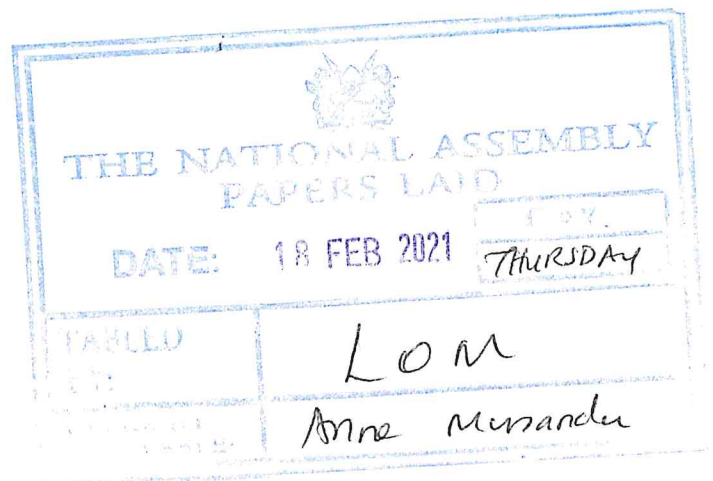 THE NATIONAL ASSEMBLY
PAPERS LAID
DAY.
DATE: 18 FEB 2021 THURSDAY
TABLED
BY:
LOM
Anne